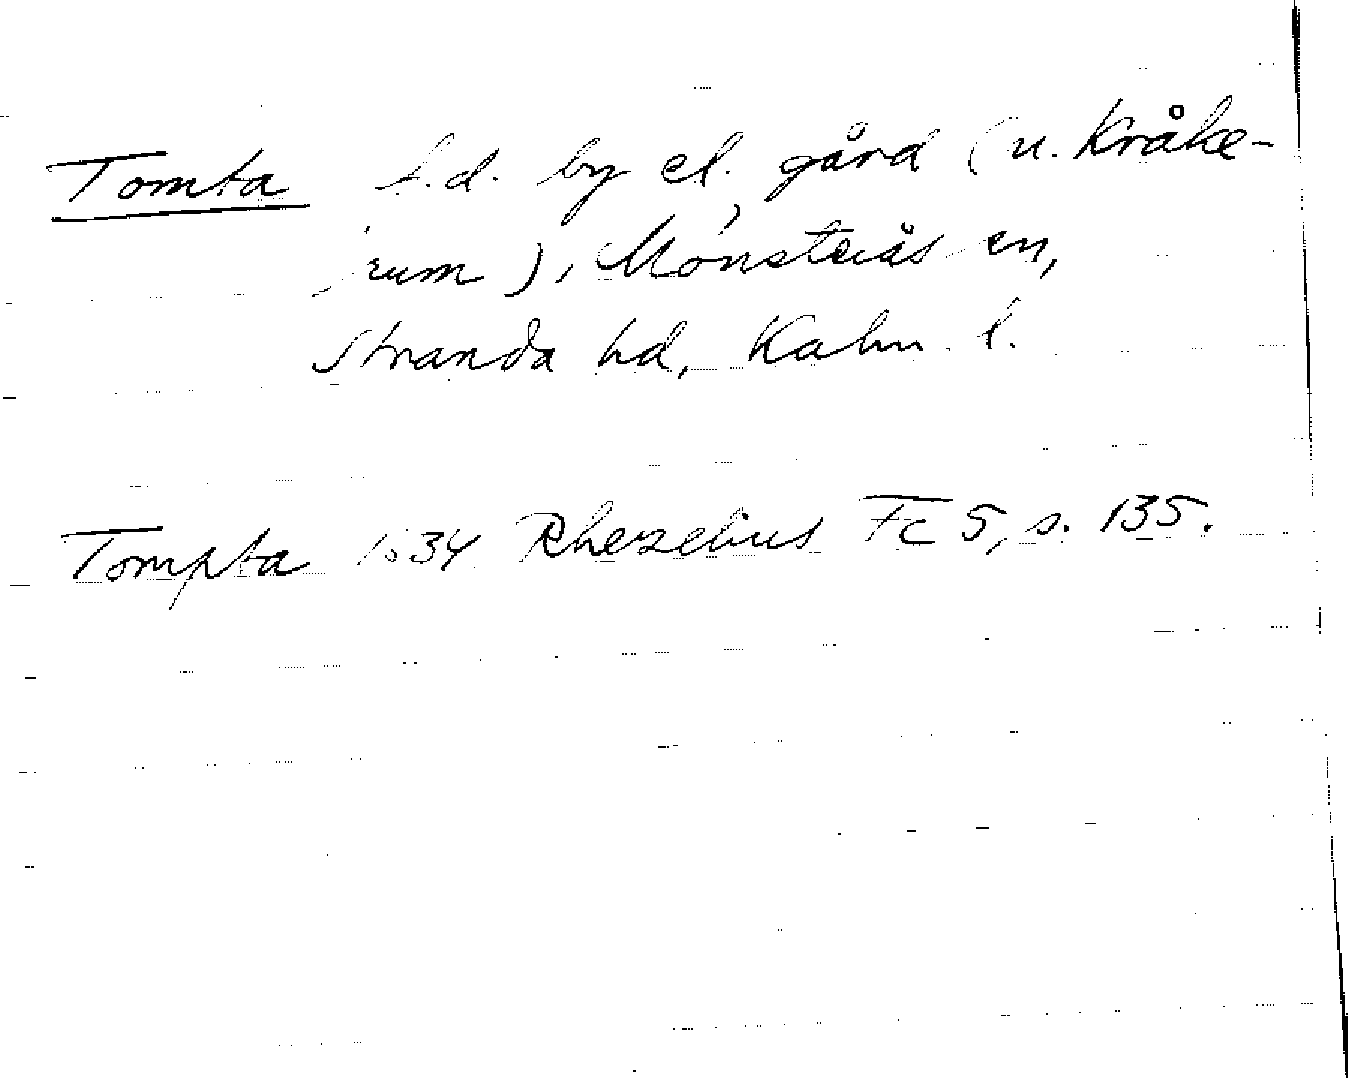 Tomta f.d. by el. gård (u. Kråke-
rum), Mönsterås sn,
Stranda hd, Kalm. l.
Tompta 1634 Rhezelius Fc 5, s. 135.